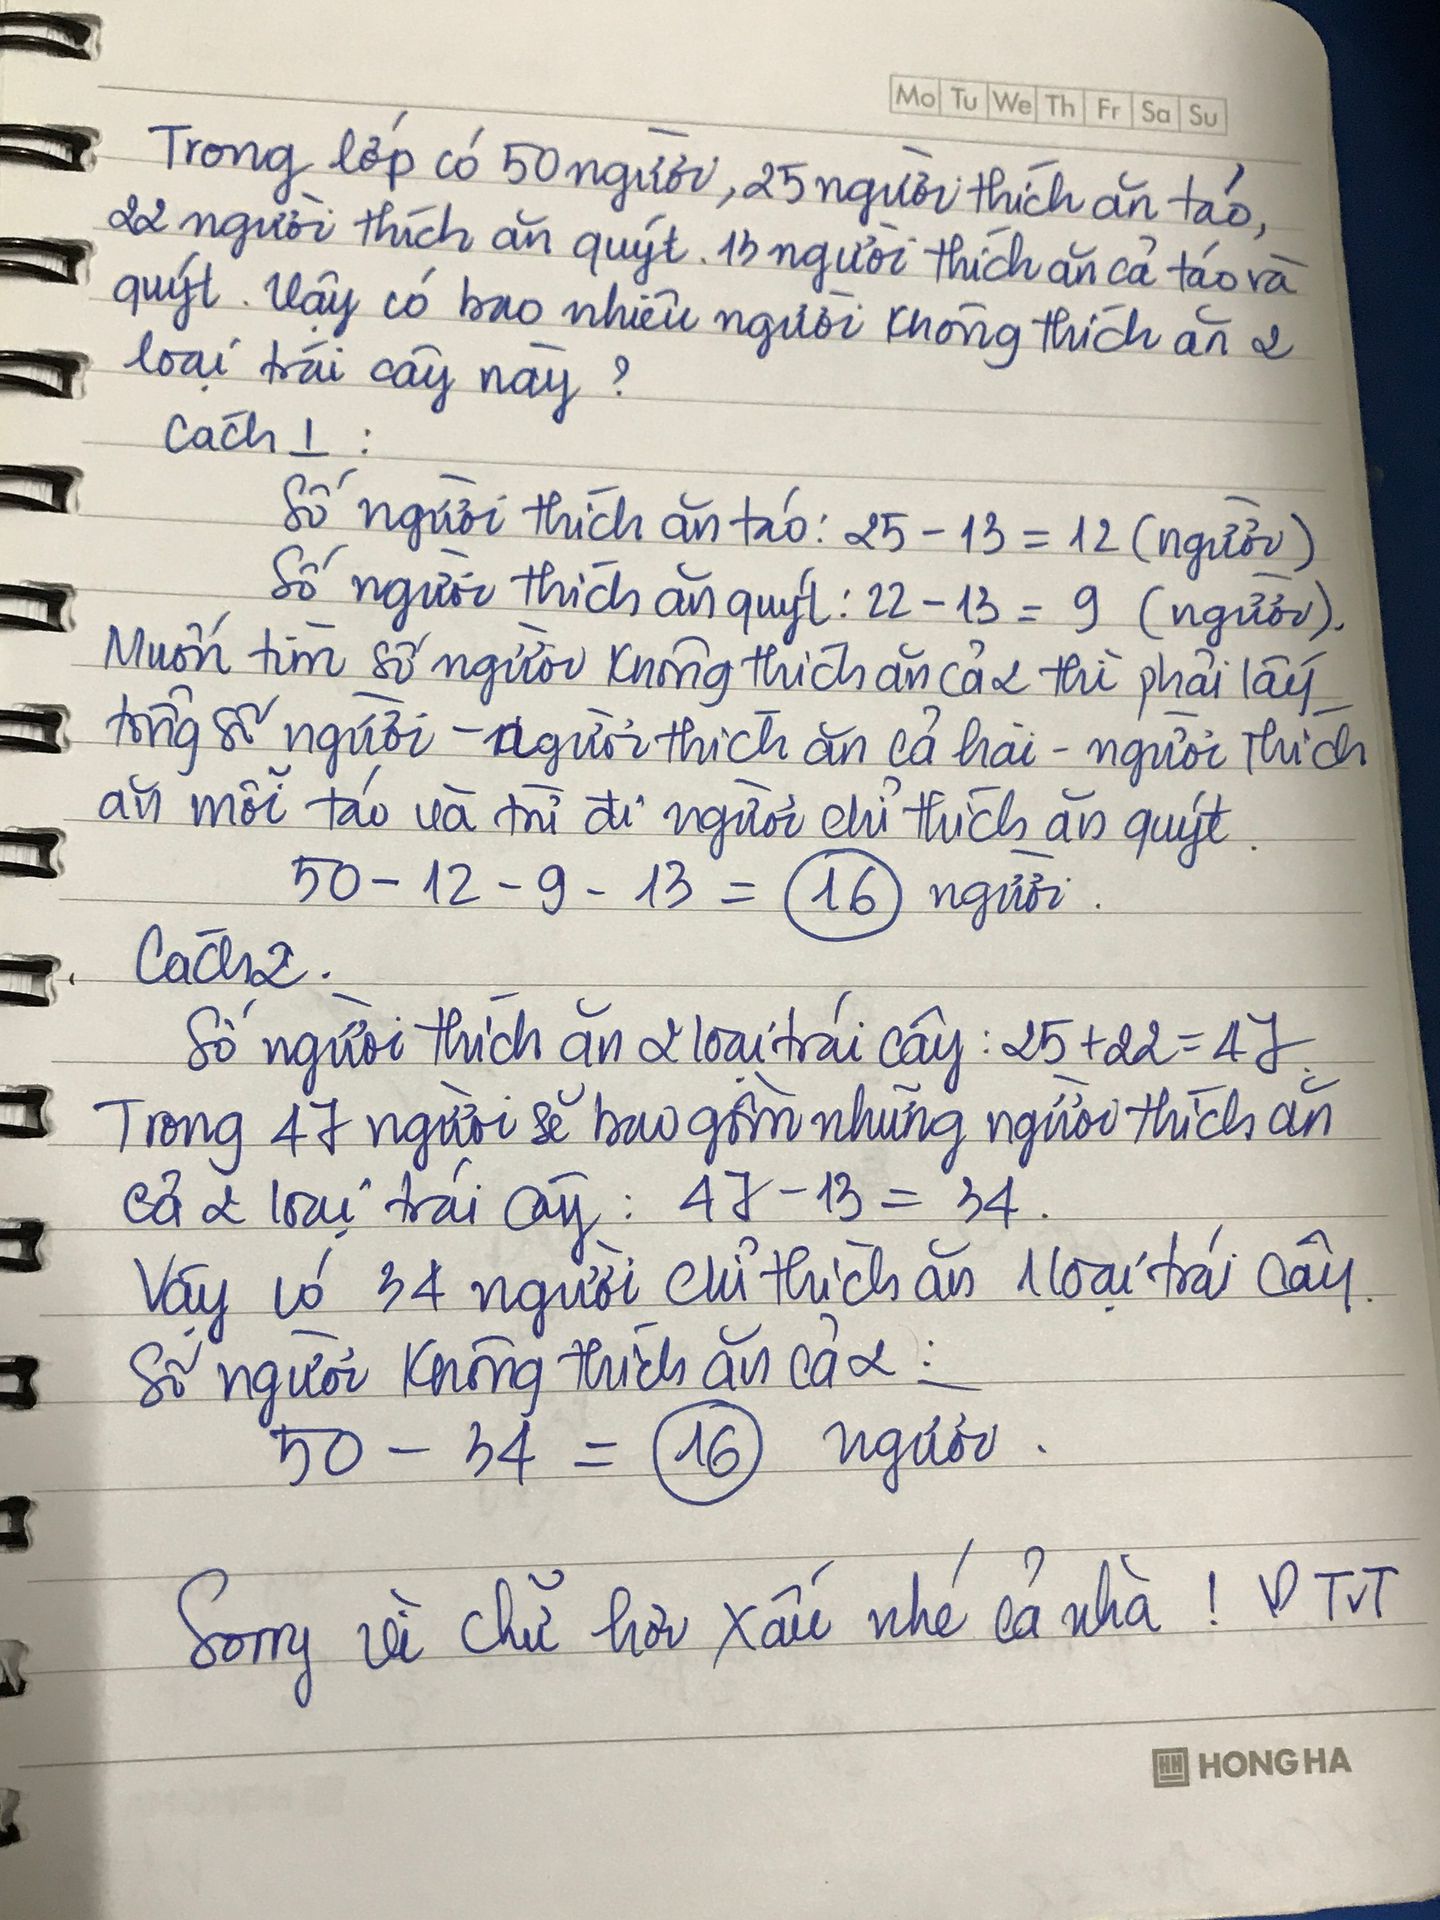 Mo Tu We Th Fr Sa Su
Trong lớp có 50 người, 25 người thích ăn táo,
22 người thích ăn quýt. 13 người thích ăn cả táo và
quýt. Vậy có bao nhiêu người không thích ăn 2
loại trái cây này ?
Cách 1 :
Số người thích ăn táo: 25 - 13 = 12 (người)
Số người thích ăn quýt: 22 - 13 = 9 (người).
Muốn tìm số người không thích ăn cả 2 thì phải lấy
tổng số người - người thích ăn cả hai - người thích
ăn mỗi táo và trừ đi người chỉ thích ăn quýt.
50 - 12 - 9 - 13 = 16 người.
Cách 2.
Số người thích ăn 2 loại trái cây : 25 + 22 = 47.
Trong 47 người sẽ bao gồm những người thích ăn
cả 2 loại trái cây : 47 - 13 = 34.
Vậy có 34 người chỉ thích ăn 1 loại trái cây.
Số người không thích ăn cả 2 :
50 - 34 = 16 người.
Sorry vì chữ hơi xấu nhé cả nhà ! TvT
HH HONG HA